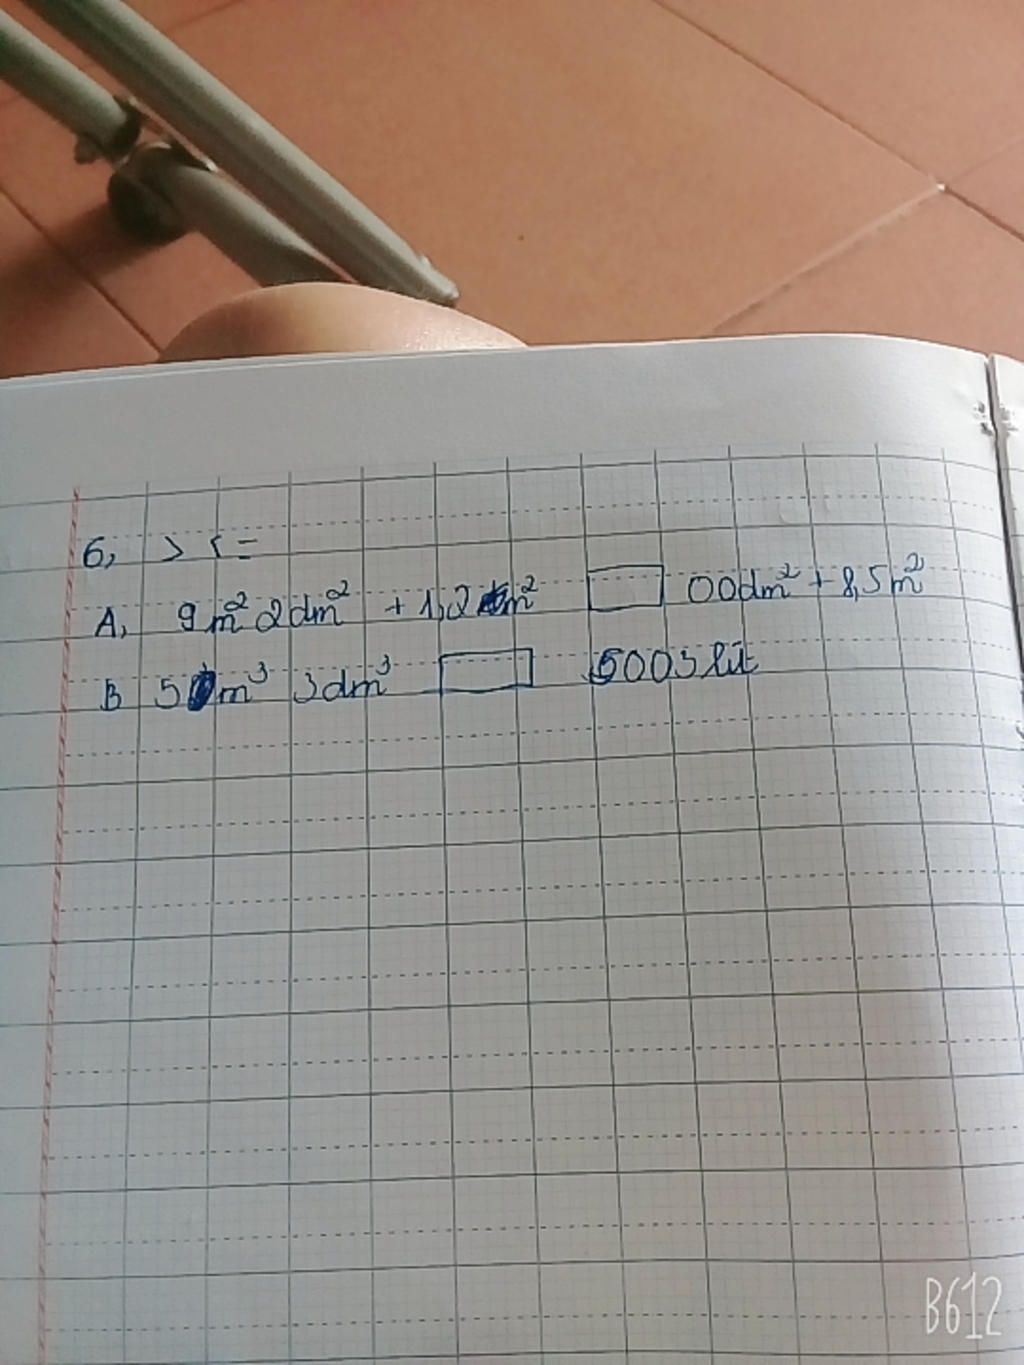 6, > < =
A, 9m² 2dm² + 1,2m² 00dm² + 8,5m²
B 5m³ 3dm³ 5003 lít
B612